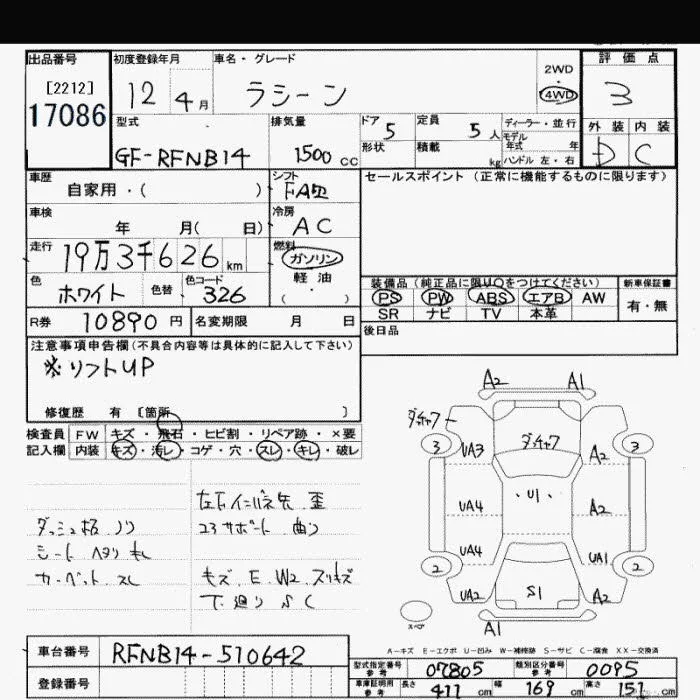 出品番号
[2212]
17086
初度登録年月
12 4月
車名・グレード
ラシーン
2WD
・
4WD
評価点
3
型式
GF-RFNB14
排気量
1500 CC
ドア 5
形状
定員 5人
積載 kg
ディーラー・並行
モデル
年式 年
ハンドル 左・右
外装 内装
D C
車歴
自家用・( )
シフト
FAT
セールスポイント (正常に機能するものに限ります)
車検
年 月( 日)
冷房
AC
走行
19万3千626 km
燃料
ガソリン
軽油
( ・ )
色
ホワイト
色替
色コード
326
装備品 (純正品に限り○をつけてください)
PS PW ABS エアB AW
SR ナビ TV 本革
新車保証書
有・無
R券 10890 円
名変期限 月 日
後日品
注意事項申告欄 (不具合内容等は具体的に記入して下さい)
※リフトUP
修復歴 有 [箇所 ]
検査員 FW キズ・飛石・ヒビ割・リペア跡・×要
記入欄 内装 キズ・汚レ・コゲ・穴・スレ・キレ・破レ
ダッシュ板 ノリ
シート ヘタリ
カーペット スレ
歪
コアサポート 曲り
キズ、E、W2、スリキズ
下廻り S C
A2 A1
ダッチャク
ダッチャク
3 3
UA3 A2
UA4 U1 A2
UA4 UA1
2 2
UA2 S1 A2
スペア
A1
A-キズ E-エクボ U-凹み W-補修跡 S-サビ C-腐食 XX-交換済
車台番号
RFNB14-510642
登録番号
型式指定番号
参考
07805
類別区分番号
参考
0095
車庫証明用
参考
長さ 411 cm
幅 169 cm
高さ 151 cm